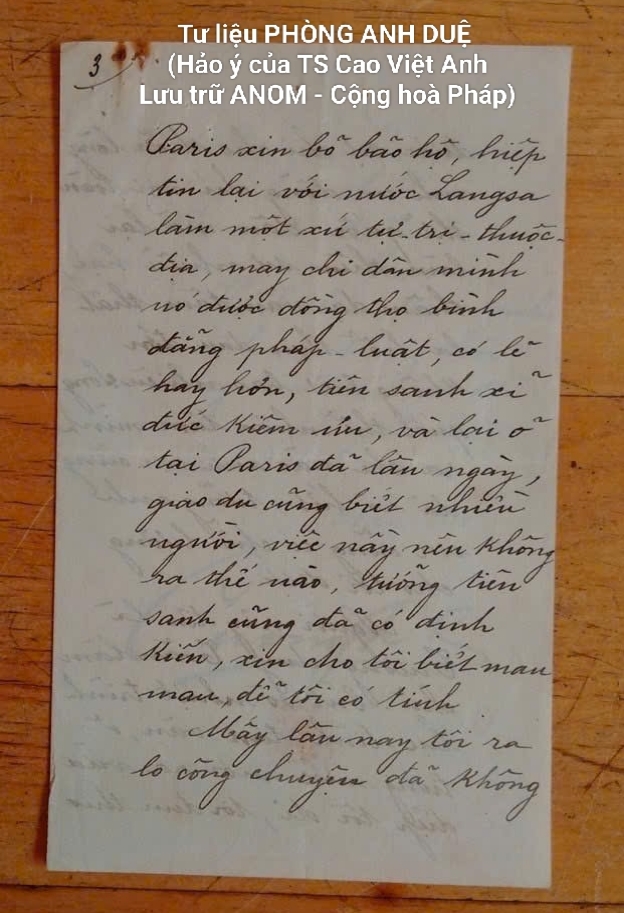 Tư liệu PHÒNG ANH DUỆ
(Hảo ý của TS Cao Việt Anh
Lưu trữ ANOM - Cộng hoà Pháp)
3
Paris xin bỏ bão hộ, hiệp
tin lại với nước Langsa
làm một xứ tự-trị-thuộc-
địa, may chi dân mình
nó được đồng thọ bình
đẵng pháp-luật, có lẽ
hay hơn, tiên sanh xĩ
đức kiêm ưu, và lại ỡ
tại Paris đã lâu ngày,
giao du cũng biết nhiều
người, việc nầy nên không
ra thế nào, tưỡng tiên
sanh cũng đã có định
kiến, xin cho tôi biết mau
mau, dễ tôi có tính
Mấy lâu nay tôi ra
lo công chuyện đã không